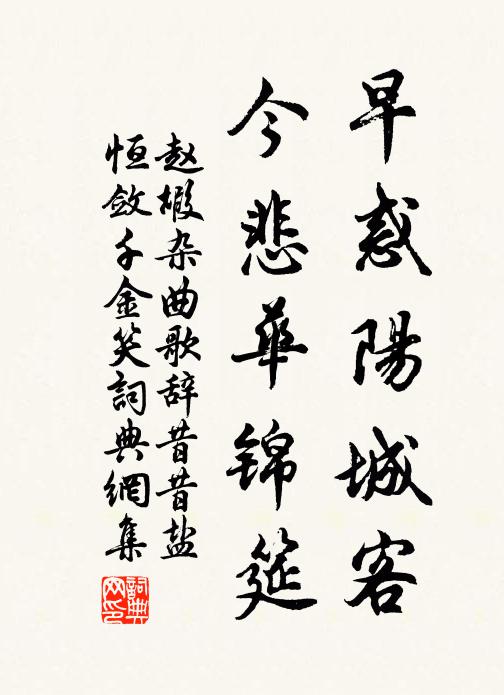 早惑陽城客
今悲華錦筵
赵嘏杂曲歌辞昔昔盐
恒斂千金笑詞典網集